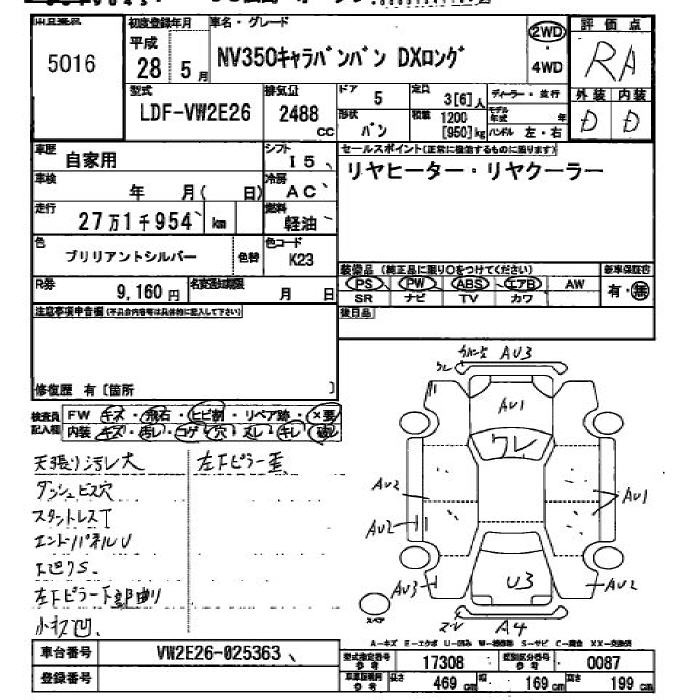 5016
初度登録年月 車名・グレード 評価点
平成 28 5月
NV350キャラバンバン DXロング
2WD
・4WD
RA
型式 LDF-VW2E26
排気量 2488 cc
ドア 5
定員 3[6]人
ディーラー・並行
外装 内装
D D
形状 バン
積載 1200 [950]kg
モデル年式 年
ハンドル 左・右
車歴 自家用
シフト I5
セールスポイント(正常に機能するものに限ります)
リヤヒーター・リヤクーラー
車検 年 月( 日)
冷房 AC
走行 27万1千954 km
燃料 軽油
色 ブリリアントシルバー 色替
色コード K23
R券 9,160円
名変期限 月 日
装備品 (純正品に限り○をつけてください) 新車保証書
PS PW ABS エアB AW 有・無
SR ナビ TV カワ
後日品
注意事項申告欄(不具合内容等は具体的に記入して下さい)
修復歴 有 [箇所 ]
検査員記入欄
FW キズ・飛石・ヒビ割・リペア跡・×要
内装 キズ・汚レ・コゲ・穴・スレ・キレ・破レ
天張り汚レ大 左下ピラー歪
ダッシュビス穴
スタントレスT
エンドパネルU
左下ピラー下部曲り
小キズ凹.
AU3
AU1
ワレ
AU2
AU1
AU2
AU3
U3
AU2
A4
スペア
A-キズ E-エクボ U-凹み W-補修跡 S-サビ C-腐食 XX-交換済
車台番号 VW2E26-025363
型式指定番号 参考 17308 類別区分番号 参考 0087
登録番号
車庫証明用 参考 長さ 469 cm 幅 169 cm 高さ 199 cm